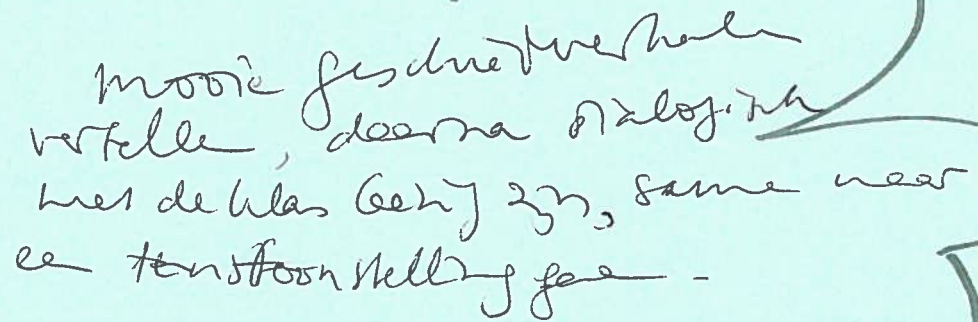 mooie geschiedverhalen
vertellen, daarna dialogisch
met de klas bezig zijn, samen naar
een tentoonstelling gaan.